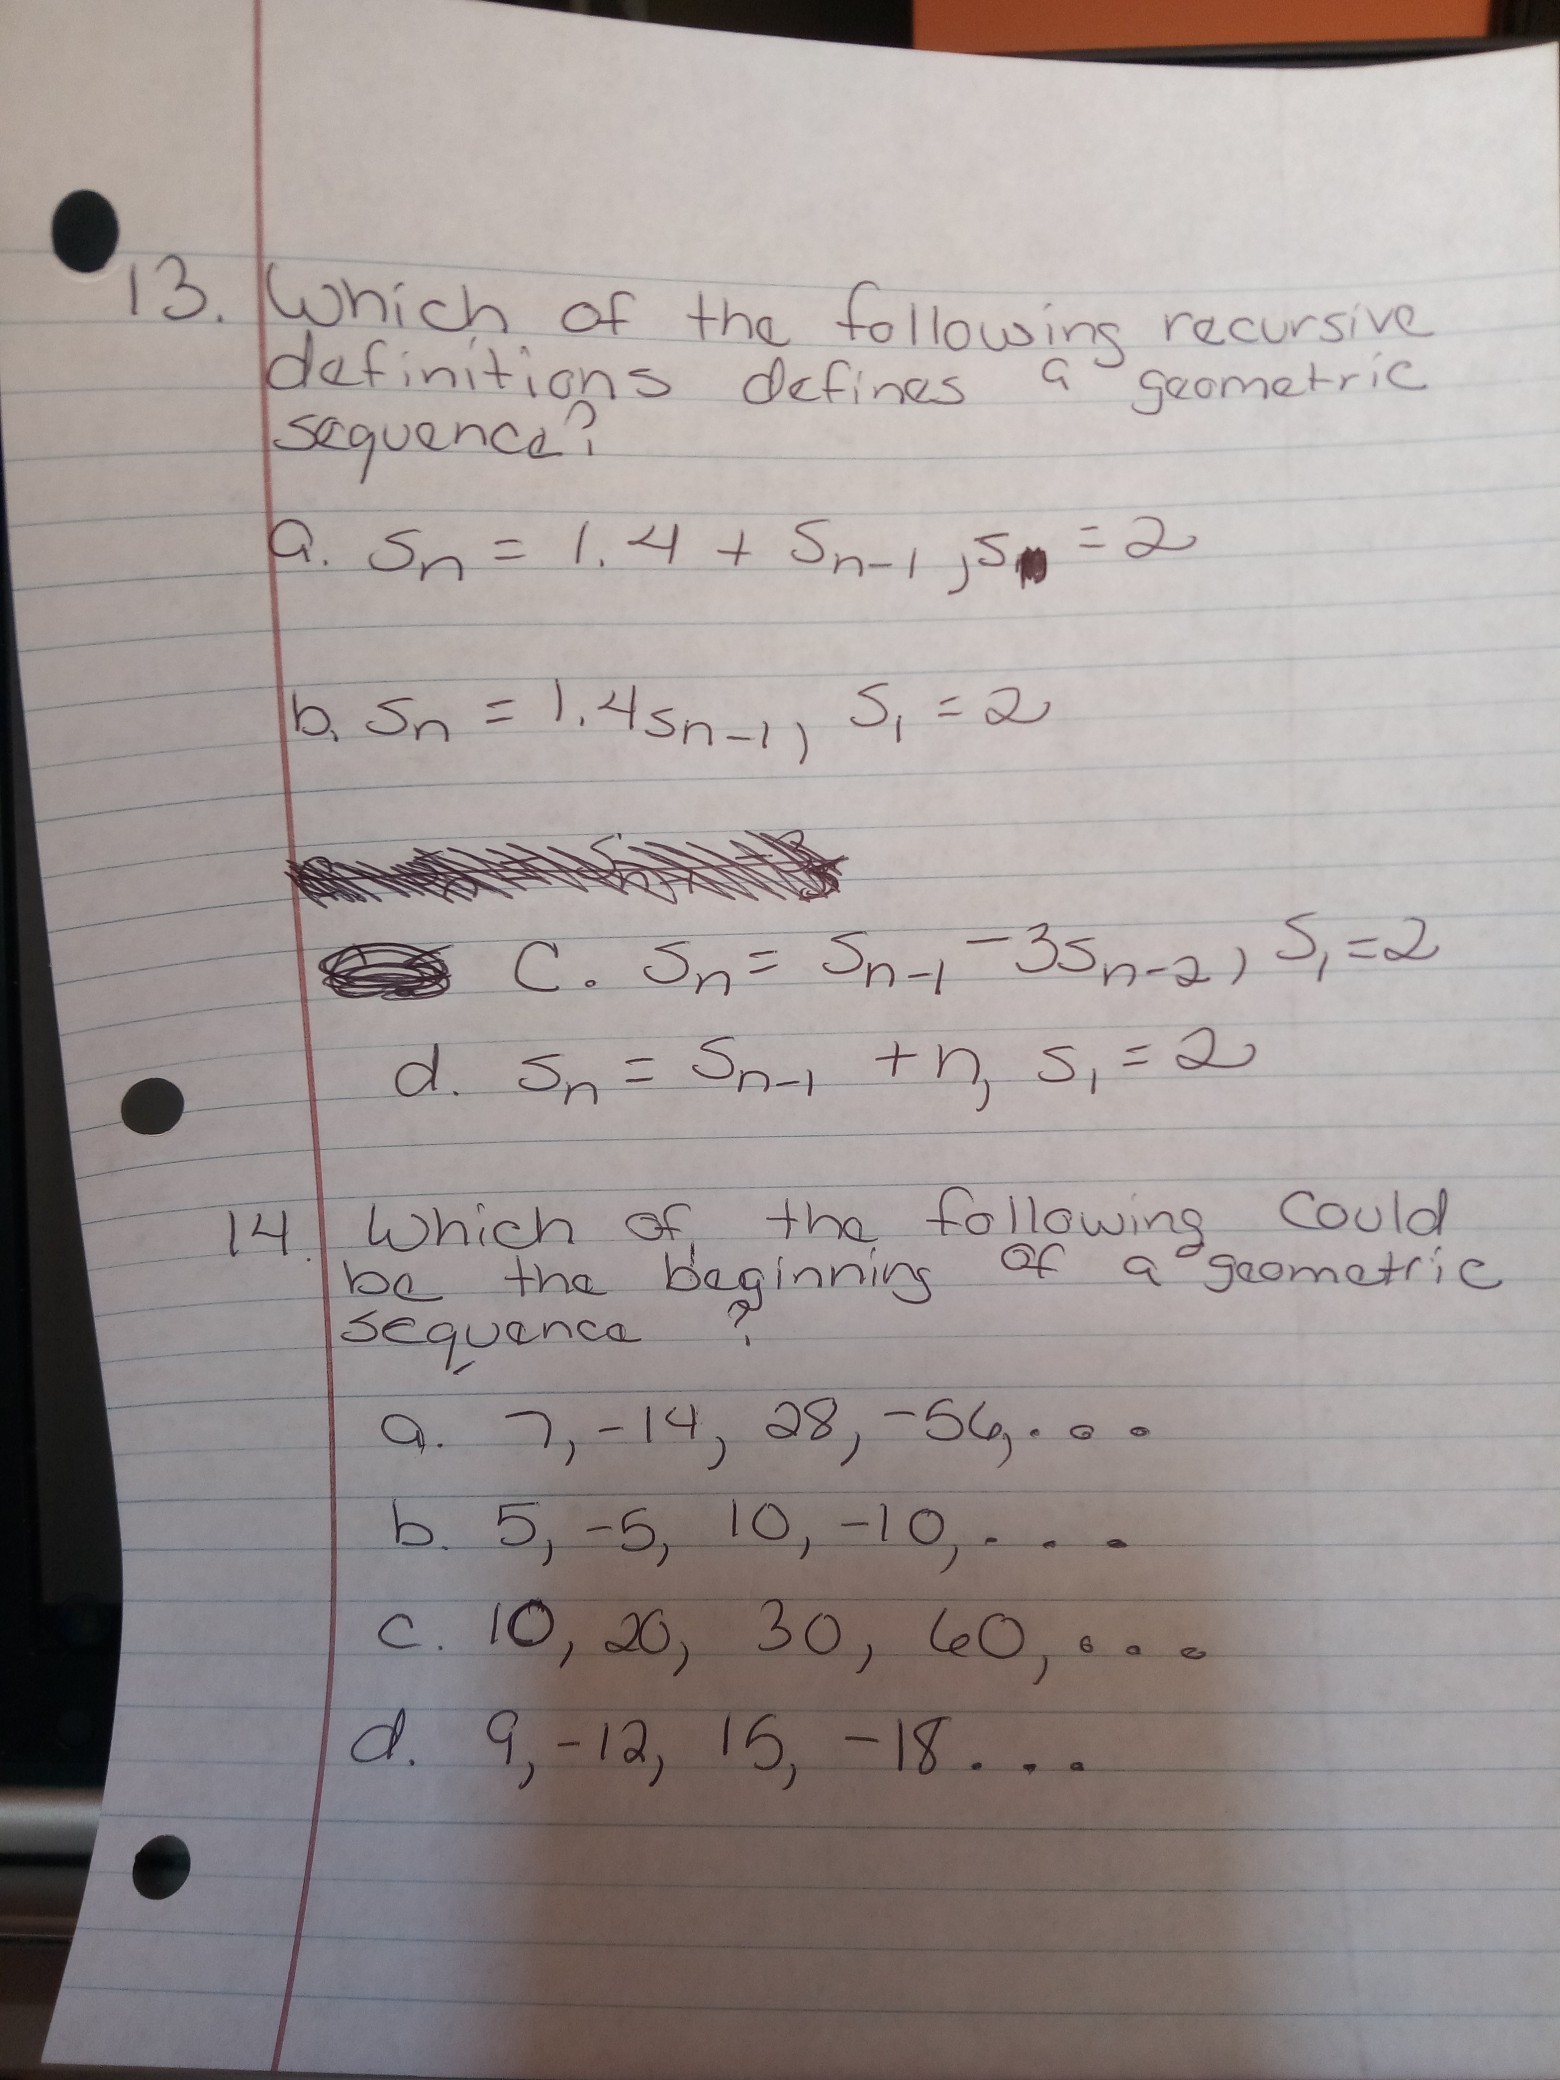 13. Which of the following recursive
definitions defines a geometric
sequence?
a. Sₙ = 1.4 + Sₙ₋₁, S = 2
b. Sₙ = 1.4Sₙ₋₁, S₁ = 2
C. Sₙ = Sₙ₋₁ - 3Sₙ₋₂, S₁ = 2
d. Sₙ = Sₙ₋₁ + n, S₁ = 2
14. Which of the following could
be the beginning of a geometric
sequence ?
a. 7, -14, 28, -56, . . .
b. 5, -5, 10, -10, . . .
c. 10, 20, 30, 60, . . .
d. 9, -12, 15, -18 . . .